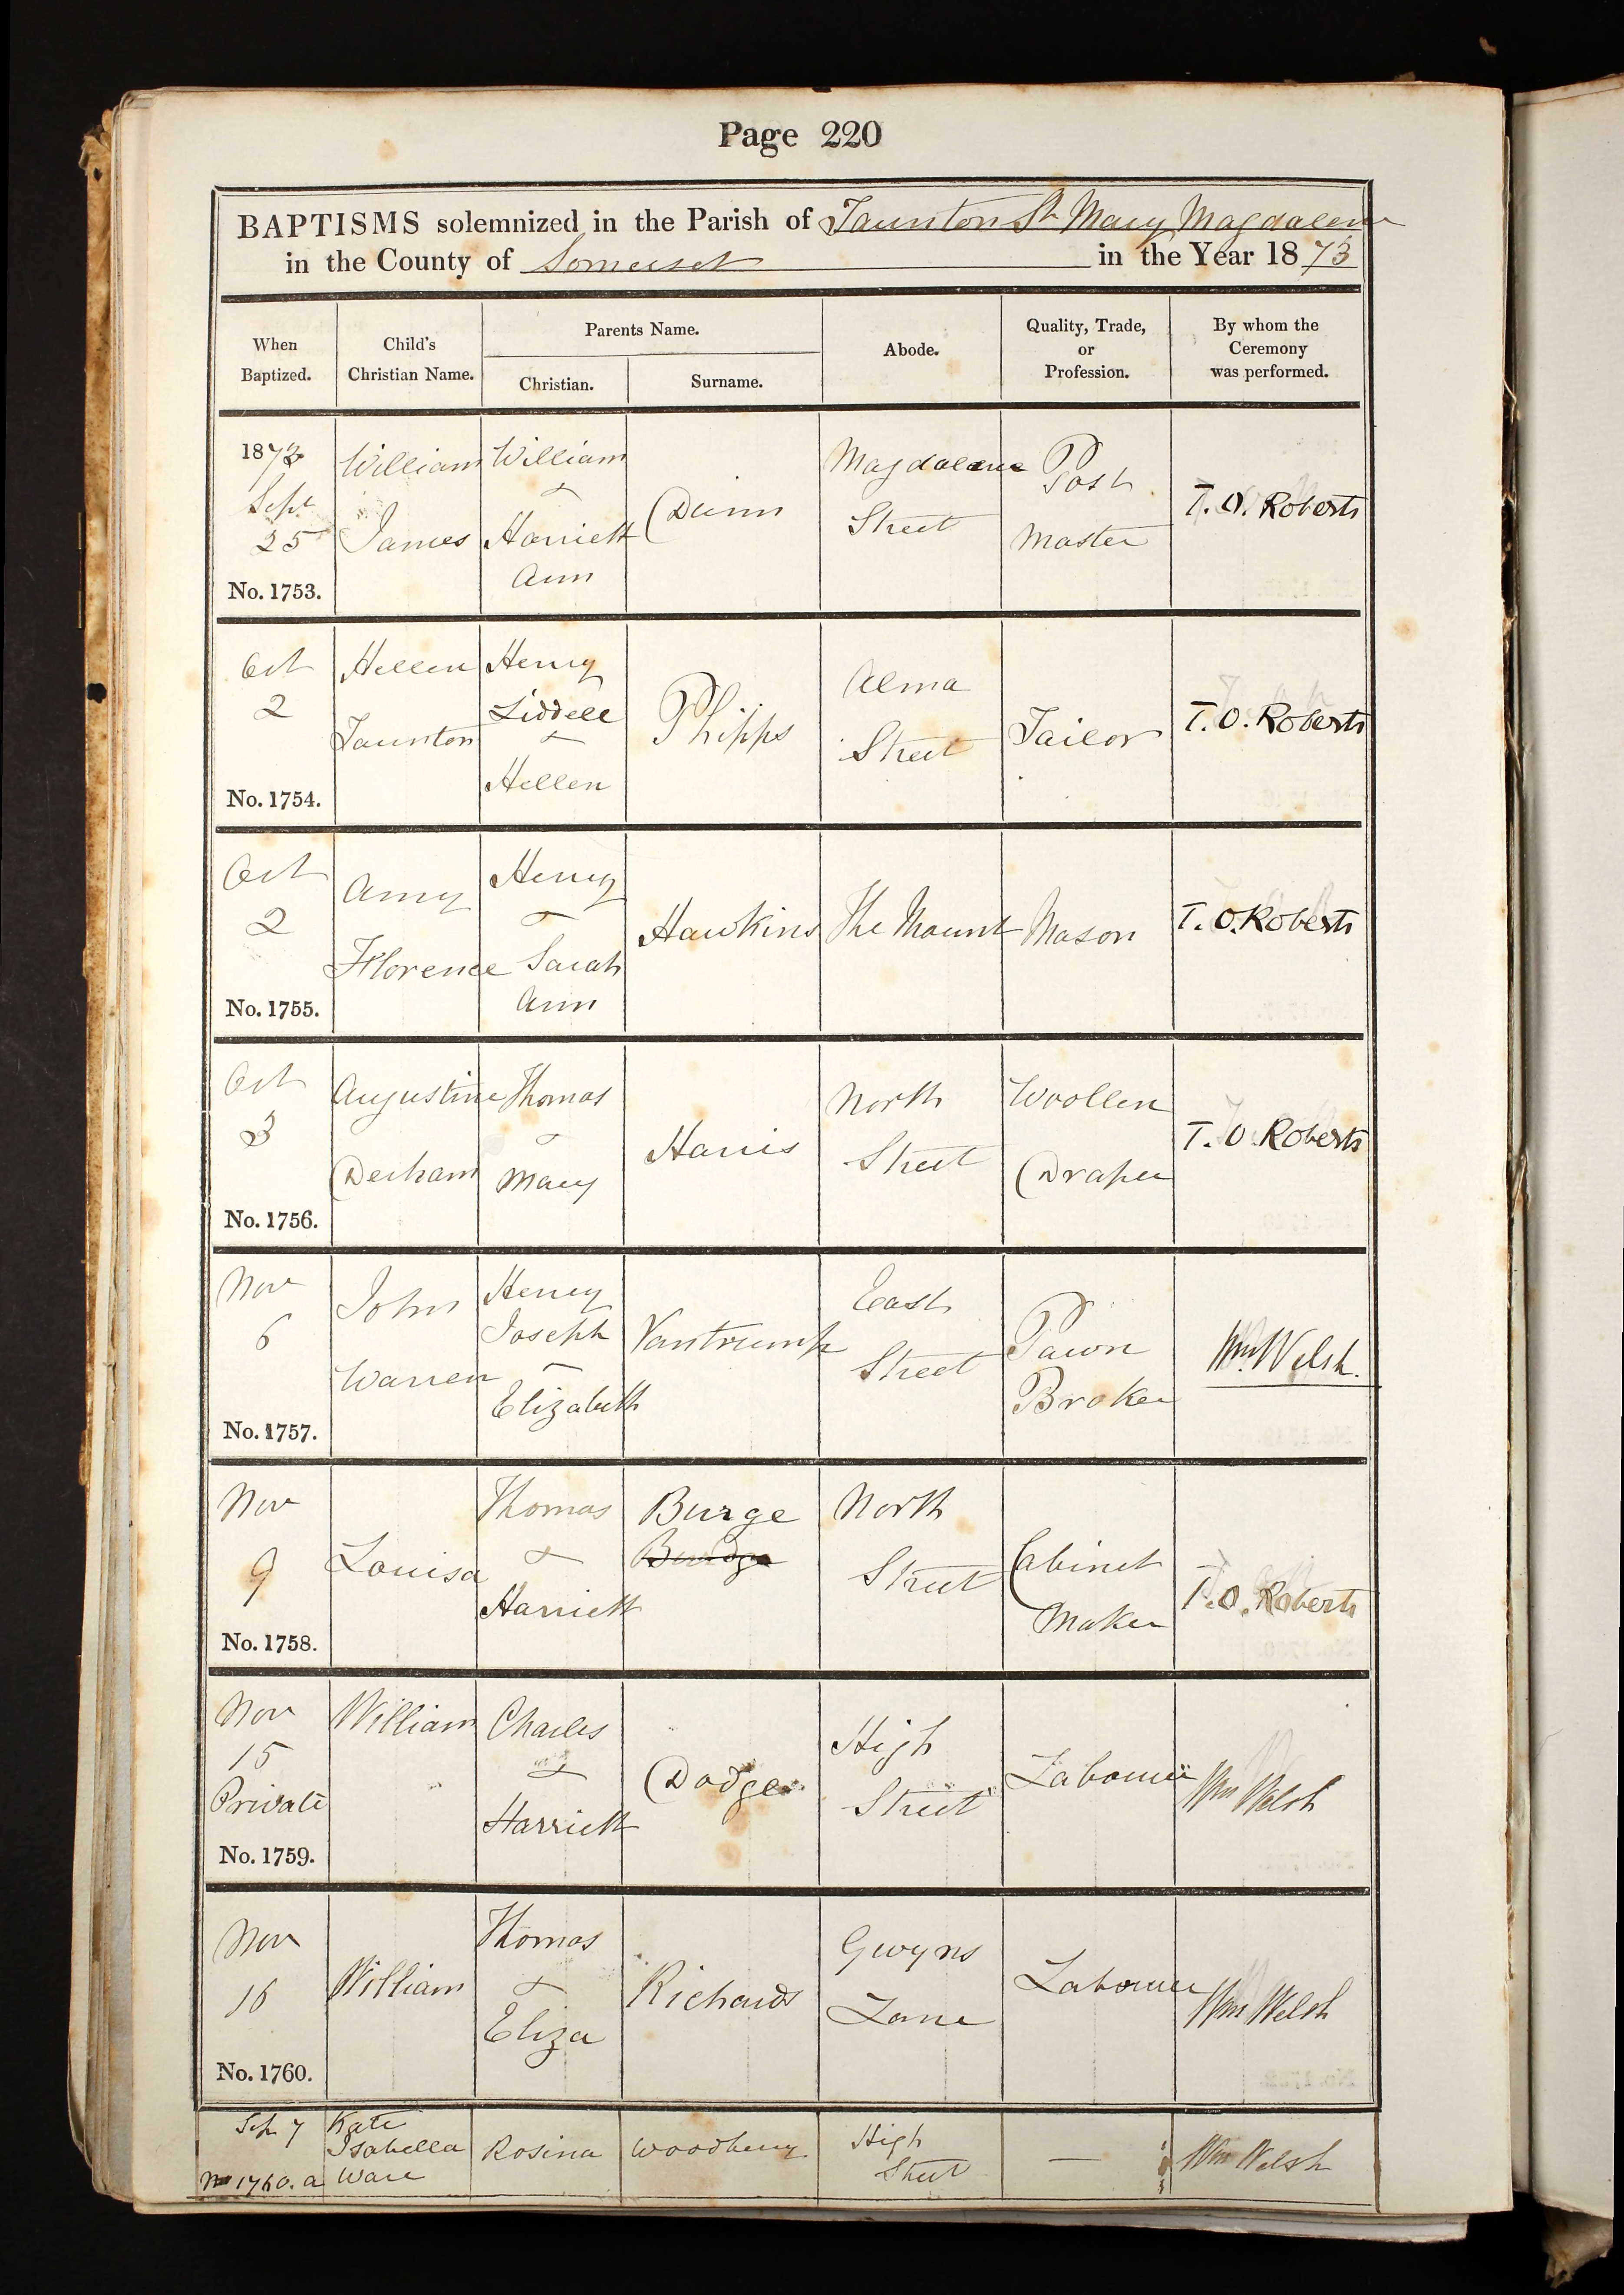 Page 220
BAPTISMS solemnized in the Parish of Taunton St Mary Magdalene
in the County of Somerset in the Year 1873
When Baptized.
Child's Christian Name.
Parents Name.
Christian.
Surname.
Abode.
Quality, Trade, or Profession.
By whom the Ceremony was performed.
1873
Sept
25
No. 1753.
William
James
William
&
Harriett
Ann
Dunn
Magdalene
Street
Post
Master
T. O. Roberts
Oct
2
No. 1754.
Hellen
Taunton
Henry
Liddell
&
Hellen
Phipps
Alma
Street
Tailor
T. O. Roberts
Oct
2
No. 1755.
Amy
Florence
Henry
&
Sarah
Ann
Hawkins
The Mount
Mason
T. O. Roberts
Oct
3
No. 1756.
Augustine
Derham
Thomas
&
Mary
Harris
North
Street
Woollen
Draper
T. O. Roberts
Nov
6
No. 1757.
John
Warren
Henry
Joseph
&
Elizabeth
Vantrump
East
Street
Pawn
Broker
Wm. Welsh.
Nov
9
No. 1758.
Louisa
Thomas
&
Harriett
Burge
North
Street
Cabinet
Maker
T. O. Roberts
Nov
15
Private
No. 1759.
William
Charles
&
Harriett
Dodge
High
Street
Labourer
Wm Welsh
Nov
16
No. 1760.
William
Thomas
&
Eliza
Richards
Gwyns
Lane
Labourer
Wm Welsh
Sep 7
No 1760. a
Kate
Isabella
Ware
Rosina
Woodbury
High
Street
—
Wm Welsh